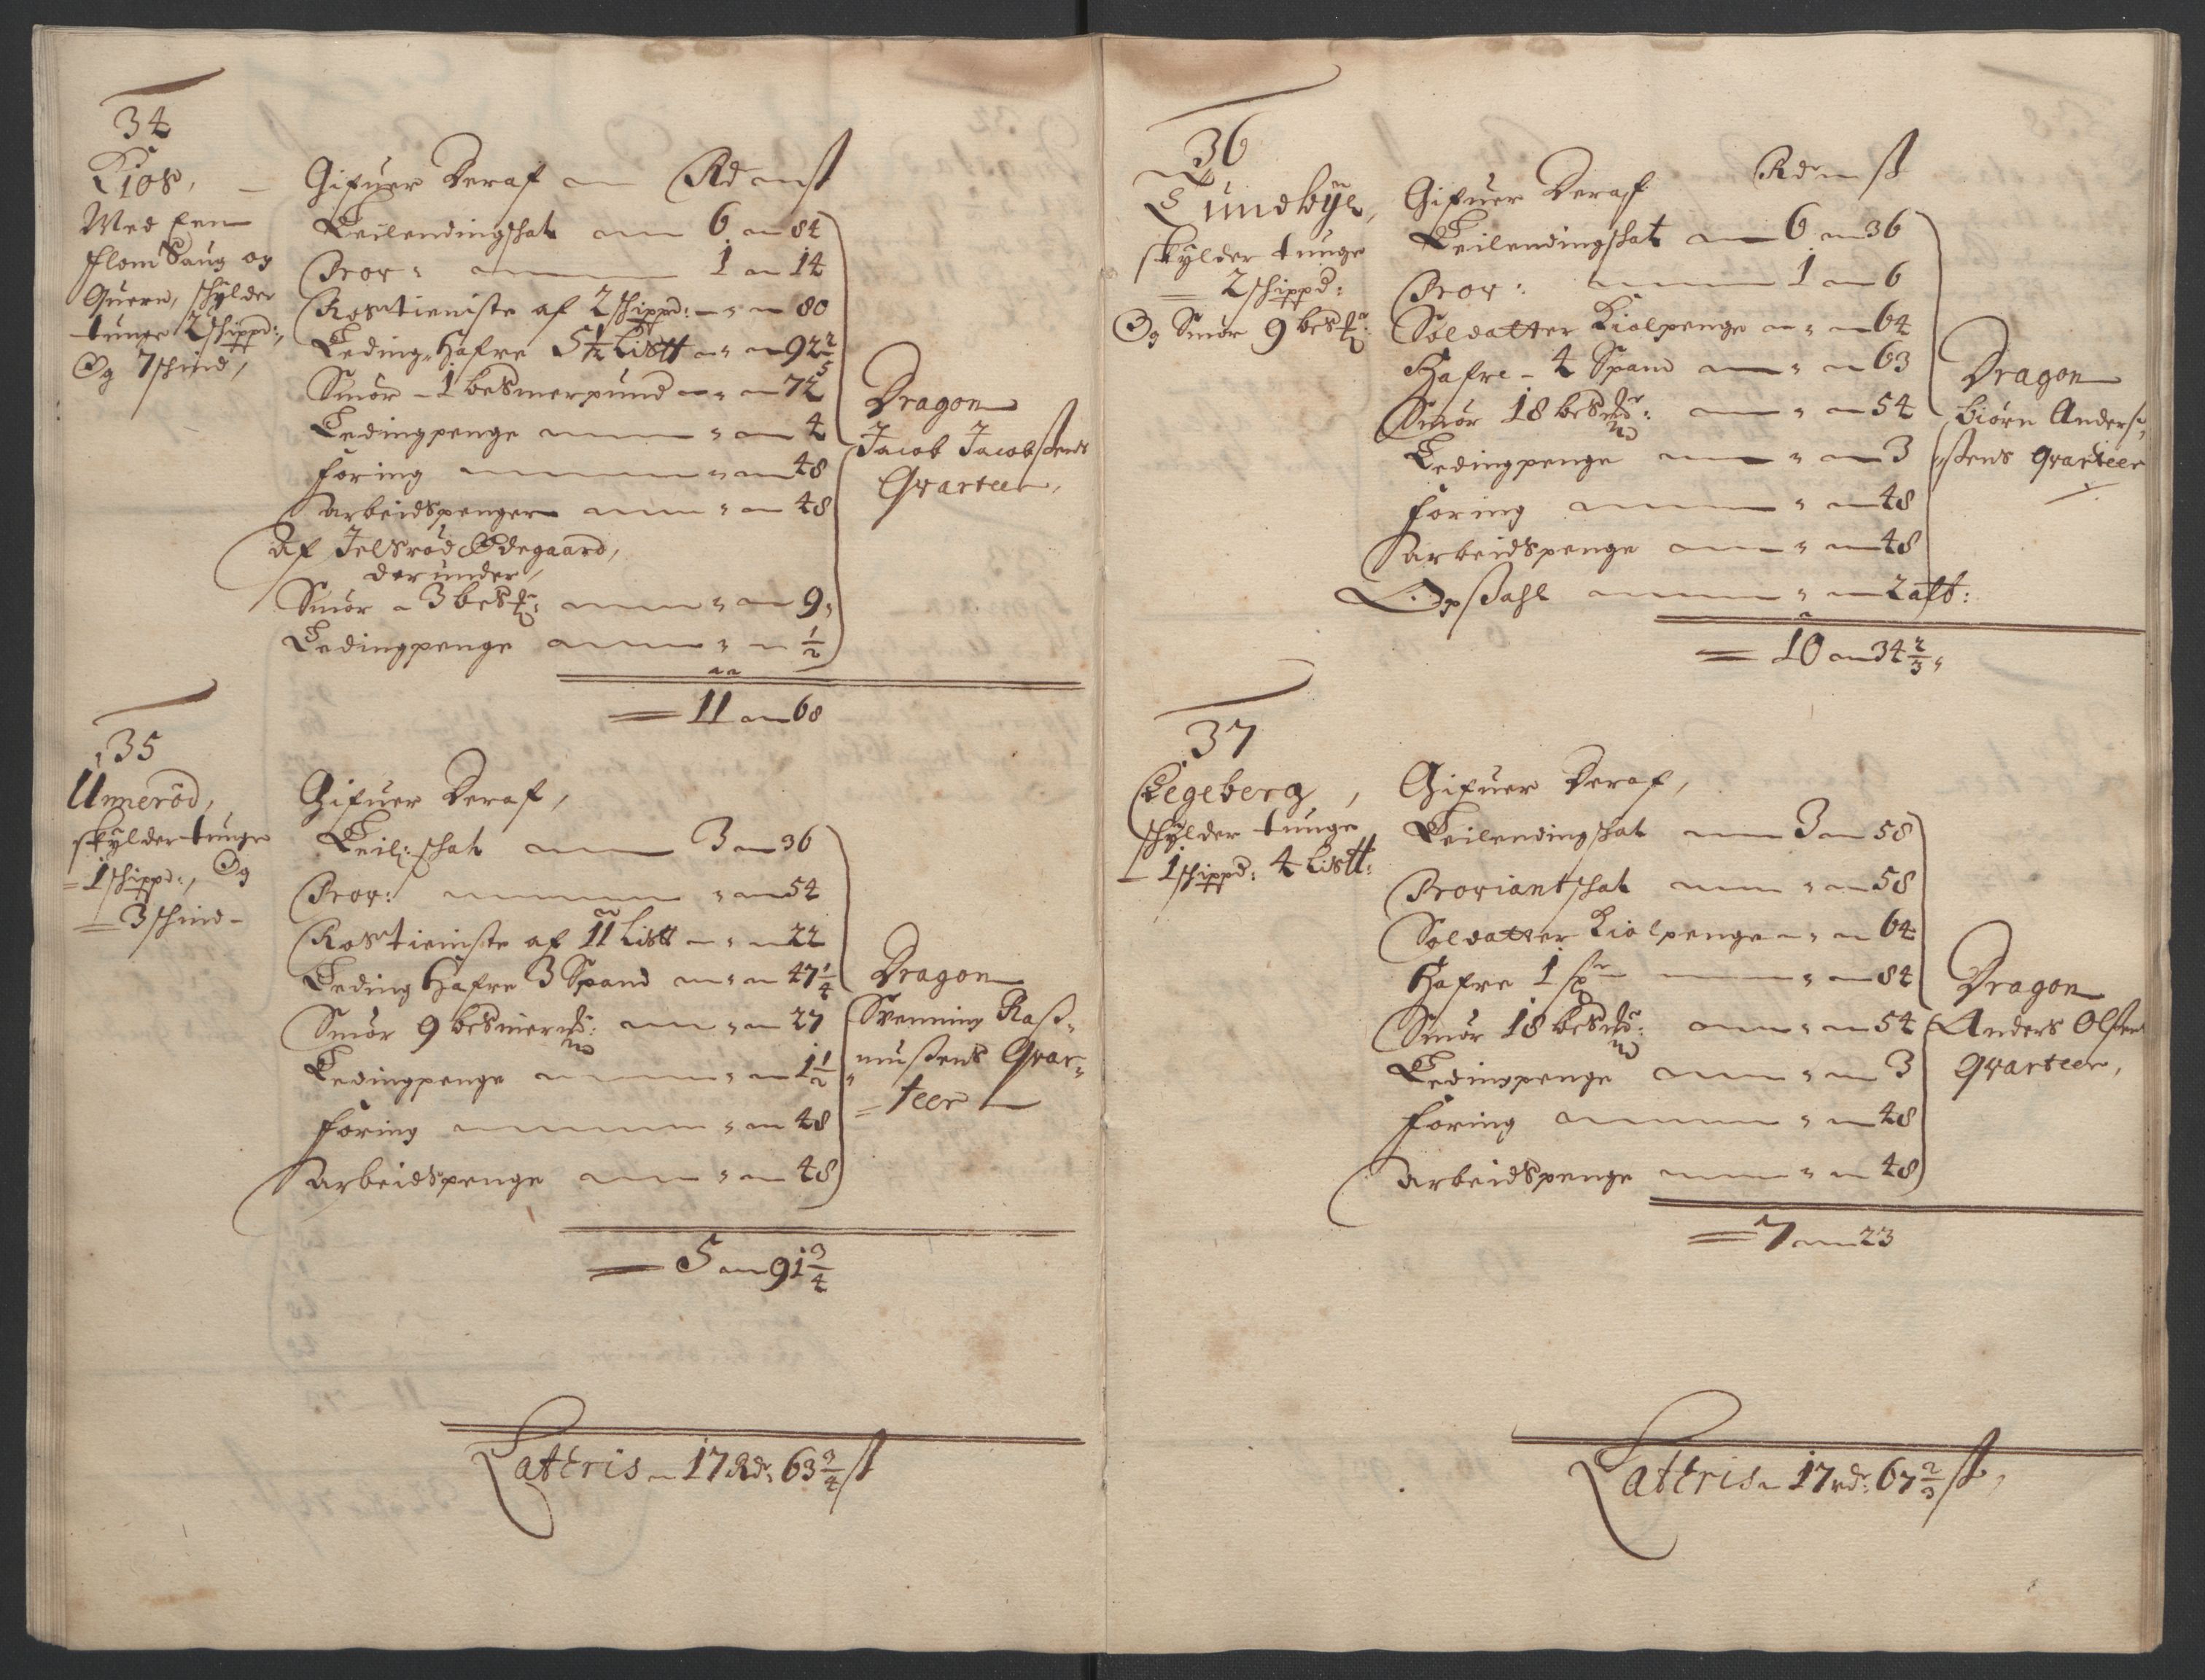 34
Kios,
Med Een
flom Saug og
Quern, schylder
tunge 2 schippd:,
Og 7 schind,
Gifuer Deraf Rd ß
Leilendingschat 6 84
Prov: 1 14
Rostieniste af 2 schippd: " 80
Leding Hafre 5½ Listt " 92 2/5
Smör 1 besmerpund " 72
Ledingpenge " 4
foring " 48
arbeidspenger " 48
Af Jelsröd Ødegaard,
derunder,
Smör 3 besß: " 9,
Ledingpenge " ½
11 68
Dragon
Jacob Jacobsens
Qvarteer,
35
Unneröd,
skylder tunge
1 schippd:, Og
3 schind
Gifuer Deraf,
Leil: schat 3 36
Prov: " 54
Rostieniste af 11 Listt " 22
Leding Hafre 3 Spand " 47 ¼
Smör 9 besmer " 27
Ledingpenge " 1½
foring " 48
arbeidspenge " 48
5 91¾
Dragon
Svenning Raß-
mußens Qvar-
teer
Latteris 17 Rd: 63¾ ß
36
Lundbÿe,
skÿlder tunge
2 schippd:
Og Smör 9 besß:
Gifuer Deraf Rdr ß
Leilendingschat 6 36
Prov: 1 6
Soldatter Kiolpenge " 64
Hafre 4 Spand " 63
Smör 18 besmr: " 54
Ledingpenge " 3
foring " 48
arbeidspenge " 48
Opßahl " 2 alb:
10 34 2/3
Dragon
biörn Anders-
ßens qvarteer
37
Hegeberg,
schÿlder tunge
1 schippd: 4 Listt:
Gifuer Deraf,
Leilendingschat 3 58
Proviantschat " 58
Soldatter Kiolpenge " 64
Hafre 1 " 84
Smör 18 besmr: " 54
Ledingpenge " 3
foring " 48
arbeidspenge " 48
7 23
Dragon
Anders Olsens
Qvarteer,
Latteris 17 rd: 67 2/3 ß,